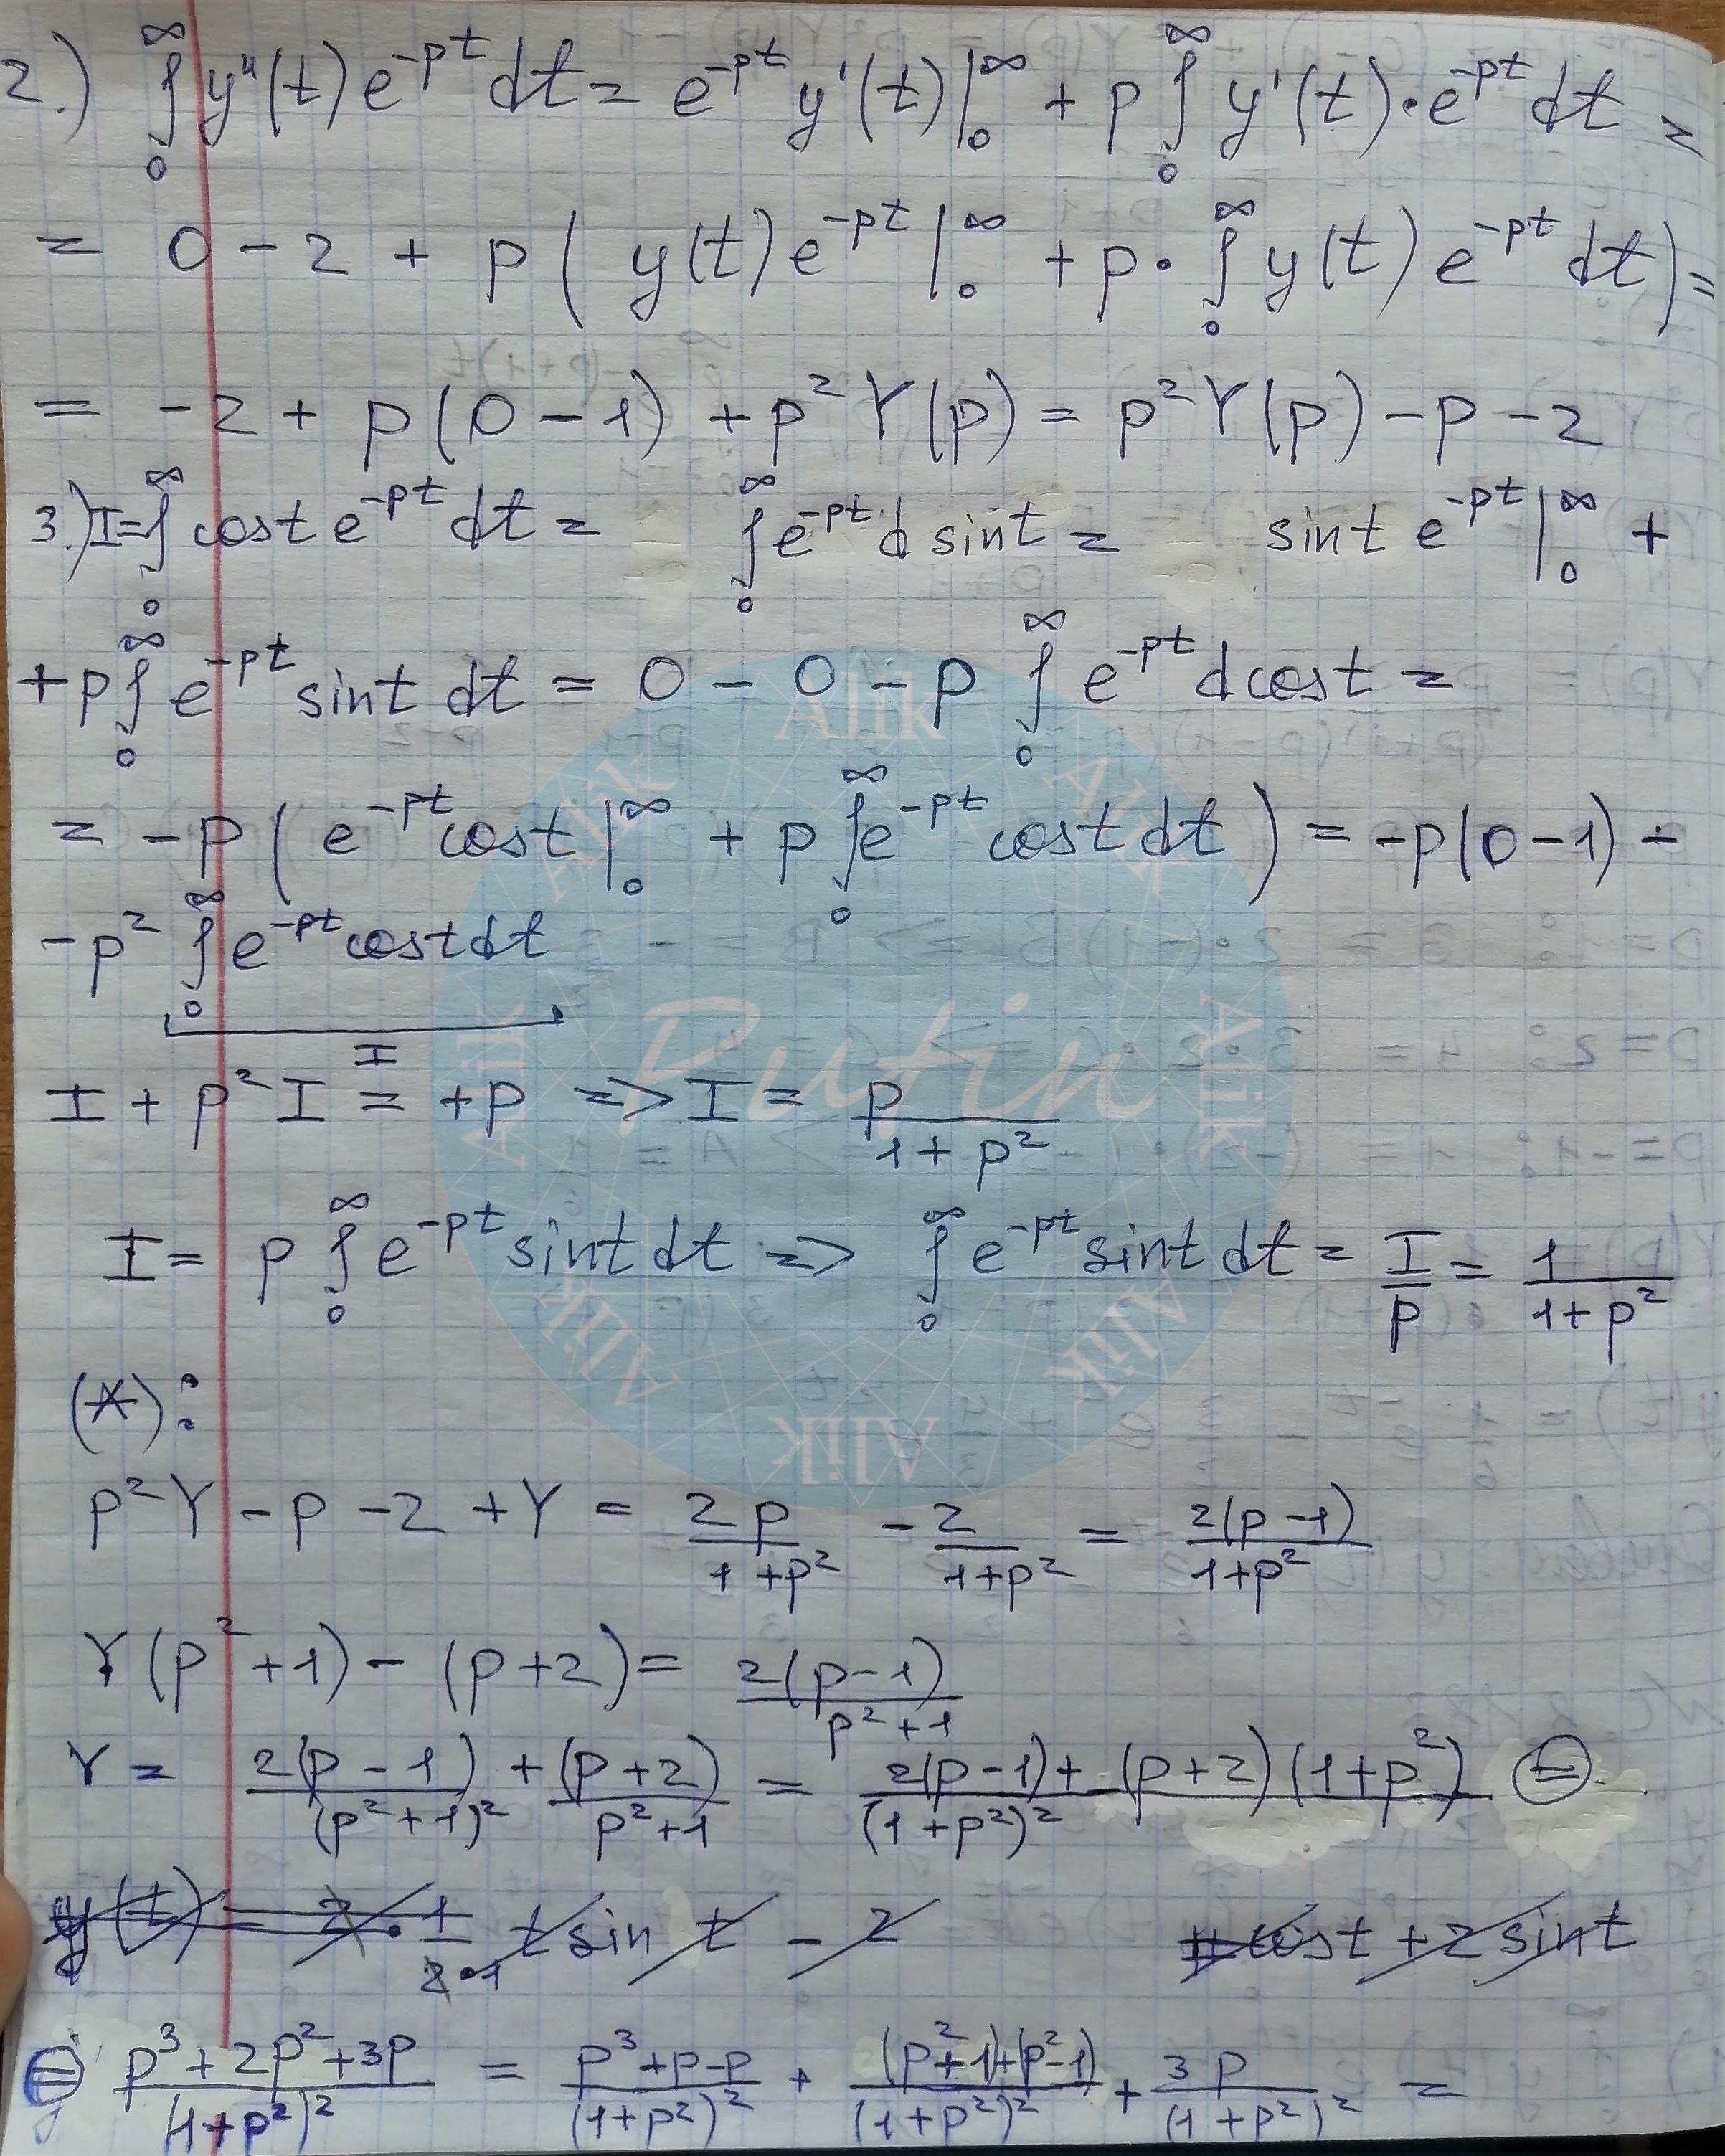 2.) ∫₀^∞ y''(t) e^{-pt} dt = e^{-pt} y'(t)|₀^∞ + p ∫₀^∞ y'(t)·e^{-pt} dt =
= 0 - 2 + p ( y(t) e^{-pt}|₀^∞ + p· ∫₀^∞ y(t) e^{-pt} dt) =
= -2 + p(0-1) + p² Y(p) = p² Y(p) - p - 2
3.) I = ∫₀^∞ cost e^{-pt} dt = ∫₀^∞ e^{-pt} d sint = sint e^{-pt}|₀^∞ +
+ p ∫₀^∞ e^{-pt} sint dt = 0 - 0 - p ∫₀^∞ e^{-pt} dcost =
= -p ( e^{-pt} cost|₀^∞ + p ∫₀^∞ e^{-pt} cost dt ) = -p(0-1) -
- p² ∫₀^∞ e^{-pt} cost dt
I
I + p² I = +p => I = p/(1+p²)
I = p ∫₀^∞ e^{-pt} sint dt => ∫₀^∞ e^{-pt} sint dt = I/p = 1/(1+p²)
(*):
p²Y - p - 2 + Y = 2p/(1+p²) - 2/(1+p²) = 2(p-1)/(1+p²)
Y(p²+1) - (p+2) = 2(p-1)/(p²+1)
Y = 2(p-1)/(p²+1)² + (p+2)/(p²+1) = (2(p-1) + (p+2)(1+p²))/(1+p²)² ⊜
y(t) = 2·1/(2·1) t sin t - 2 cost + 2 sint
⊜ (p³+2p²+3p)/(1+p²)² = (p³+p-p)/(1+p²)² + ((p²+1)+(p²-1))/(1+p²)² + 3p/(1+p²)² =
Putin
Alik
Alik
Alik
Alik
Alik
Alik
Alik
Alik